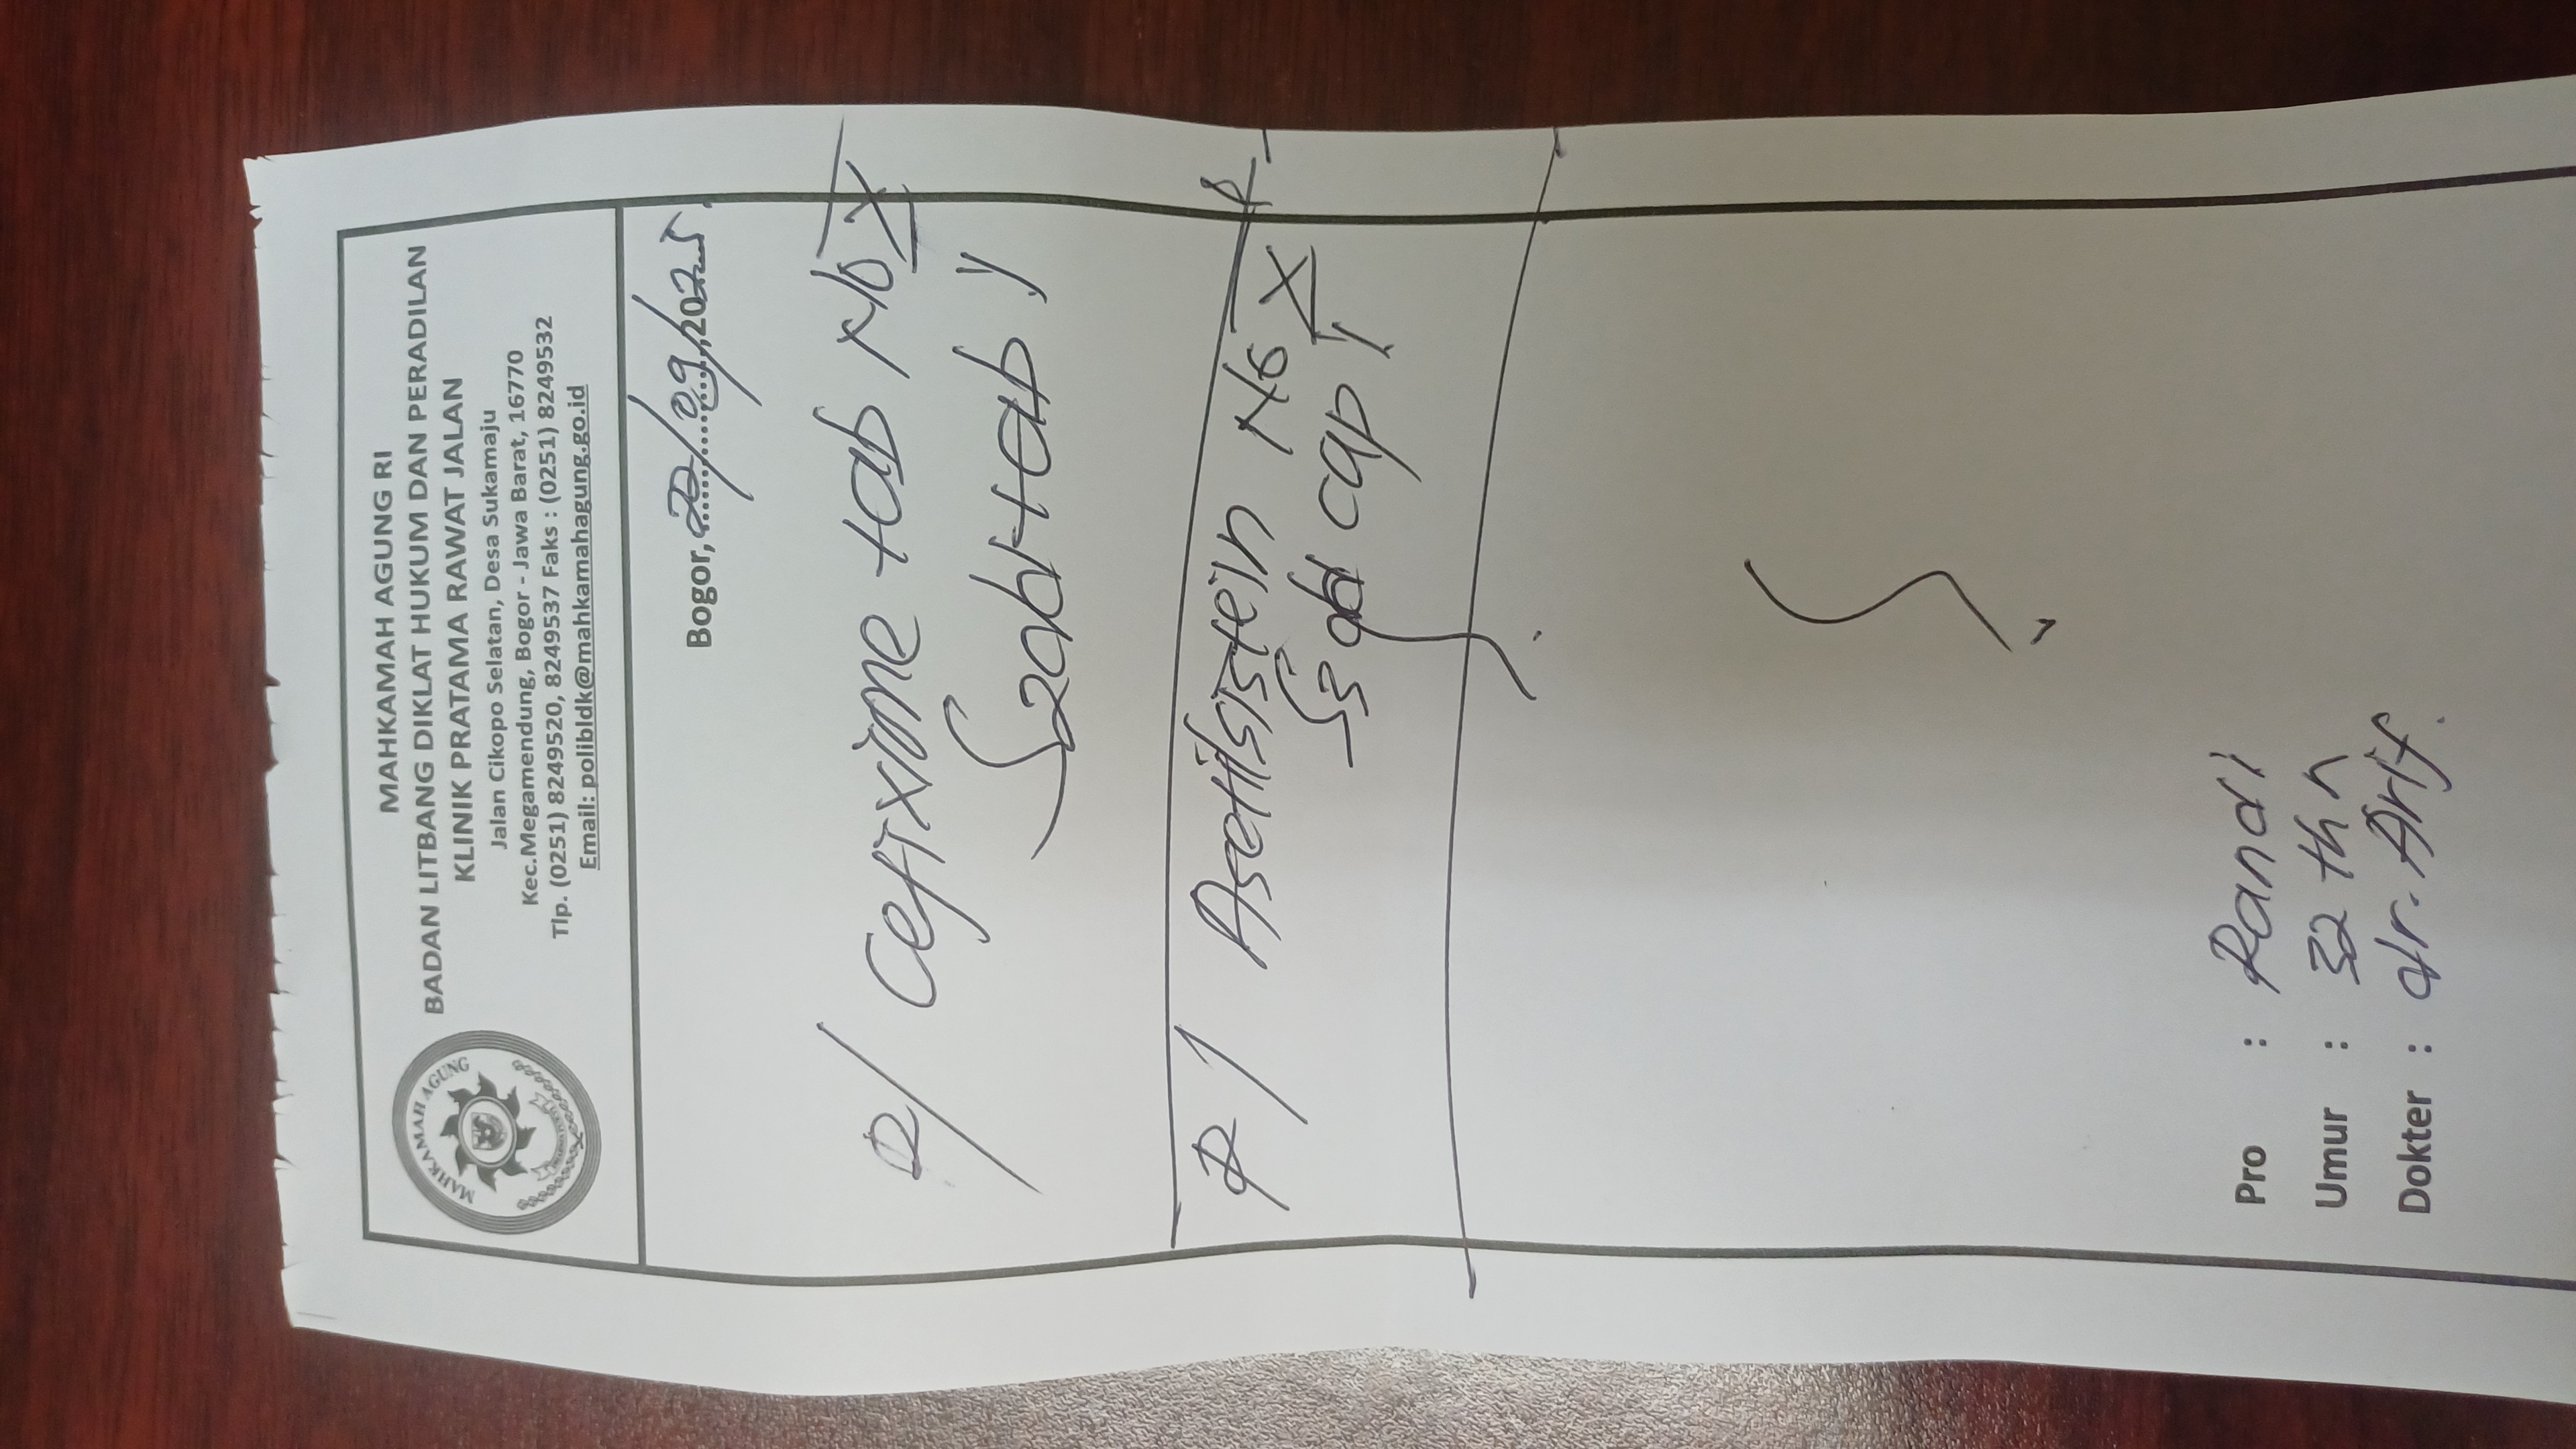 MAHKAMAH AGUNG RI
BADAN LITBANG DIKLAT HUKUM DAN PERADILAN
KLINIK PRATAMA RAWAT JALAN
Jalan Cikopo Selatan, Desa Sukamaju
Kec.Megamendung, Bogor - Jawa Barat, 16770
Tlp. (0251) 8249520, 8249537 Faks : (0251) 8249532
Email: polibldk@mahkamahagung.go.id
MAHKAMAH AGUNG
Bogor, 22/09/2025.
R/ Cefixime tab No X
S2dd tab I
R/ Asetilsistein No X
S3dd cap I
Pro : Randi
Umur : 32 thn
Dokter : dr. Arif.